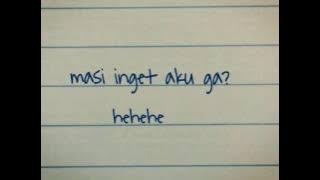 masi inget aku ga?
hehehe